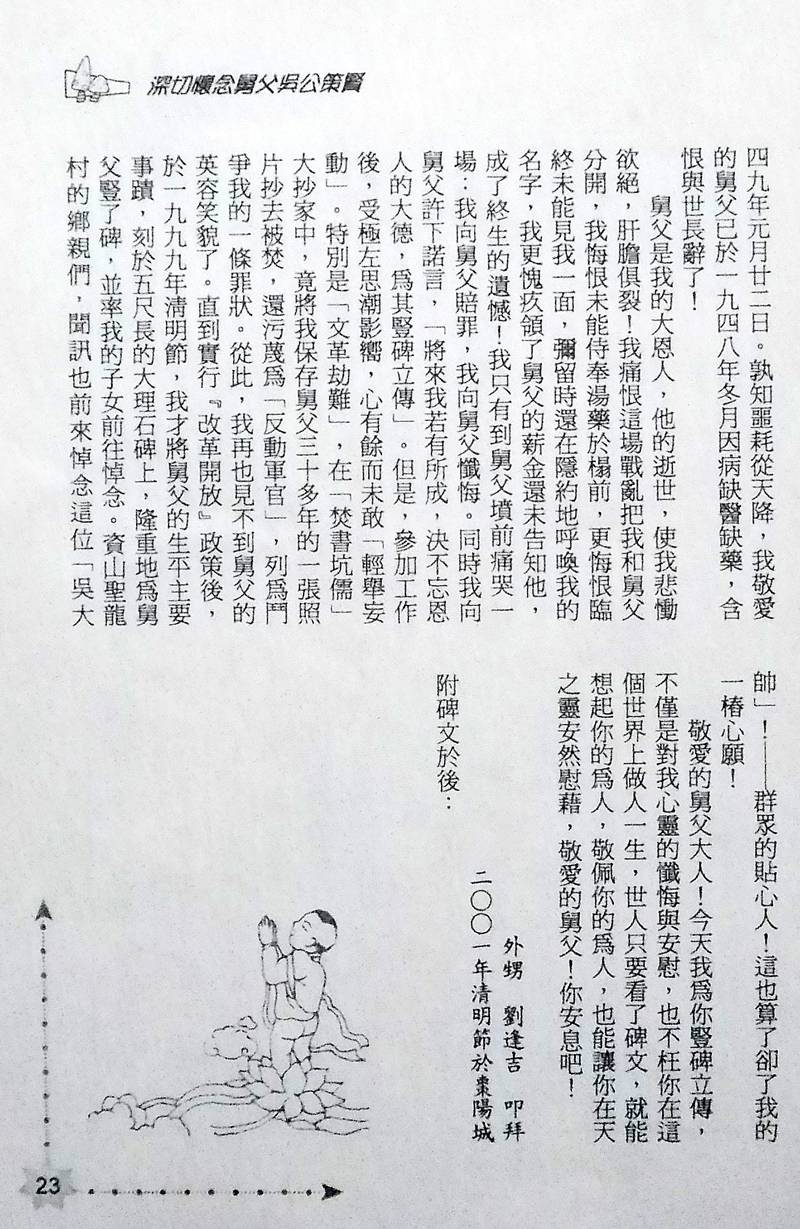 深切懷念舅父吳公策賢
四九年元月廿二日。孰知噩耗從天降，我敬愛
的舅父已於一九四八年冬月因病缺醫缺藥，含
恨與世長辭了！
舅父是我的大恩人，他的逝世，使我悲慟
欲絕，肝膽俱裂！我痛恨這場戰亂把我和舅父
分開，我悔恨未能侍奉湯藥於榻前，更悔恨臨
終未能見我一面，彌留時還在隱約地呼喚我的
名字，我更愧疚領了舅父的薪金還未告知他，
成了終生的遺憾！我只有到舅父墳前痛哭一
場：我向舅父賠罪，我向舅父懺悔。同時我向
舅父許下諾言，「將來我若有所成，決不忘恩
人的大德，爲其豎碑立傳」。但是，參加工作
後，受極左思潮影嚮，心有餘而未敢「輕舉妄
動」。特別是「文革劫難」，在「焚書坑儒」
大抄家中，竟將我保存舅父三十多年的一張照
片抄去被焚，還污蔑爲「反動軍官」，列爲鬥
爭我的一條罪狀。從此，我再也見不到舅父的
英容笑貌了。直到實行『改革開放』政策後，
於一九九九年清明節，我才將舅父的生平主要
事蹟，刻於五尺長的大理石碑上，隆重地爲舅
父豎了碑，並率我的子女前往悼念。資山聖龍
村的鄉親們，聞訊也前來悼念這位「吳大
帥」！──群眾的貼心人！這也算了卻了我的
一樁心願！
敬愛的舅父大人！今天我爲你豎碑立傳，
不僅是對我心靈的懺悔與安慰，也不枉你在這
個世界上做人一生，世人只要看了碑文，就能
想起你的爲人，敬佩你的爲人，也能讓你在天
之靈安然慰藉，敬愛的舅父！你安息吧！
外甥　劉逢吉　叩拜
二〇〇一年清明節於棗陽城
附碑文於後：
23